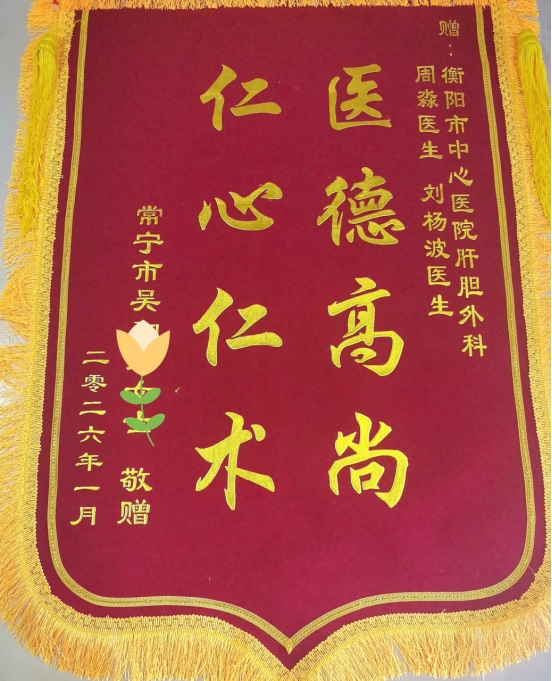 赠：
衡阳市中心医院肝胆外科
周淼医生 刘杨波医生
医德高尚
仁心仁术
常宁市吴
敬赠
二零二六年一月